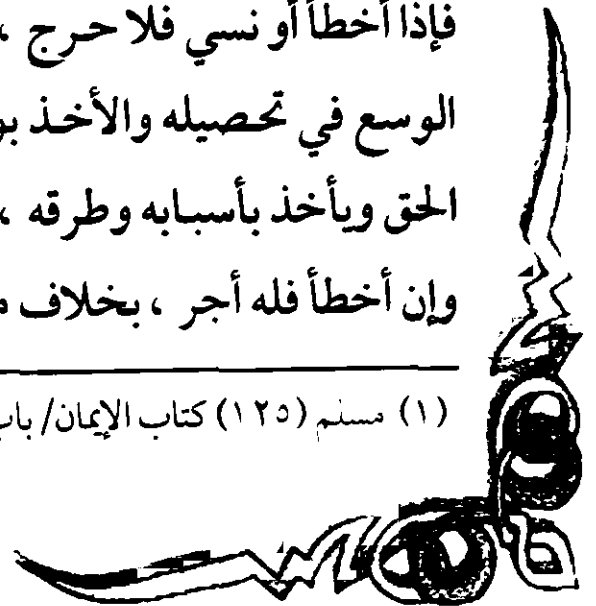 فإذا أخطأ أو نسي فلا حرج ،
الوسع في تحصيله والأخذ
الحق ويأخذ بأسبابه وطرقه ،
وإن أخطأ فله أجر ، بخلاف
(١) مسلم (١٢٥) كتاب الإيمان/ باب